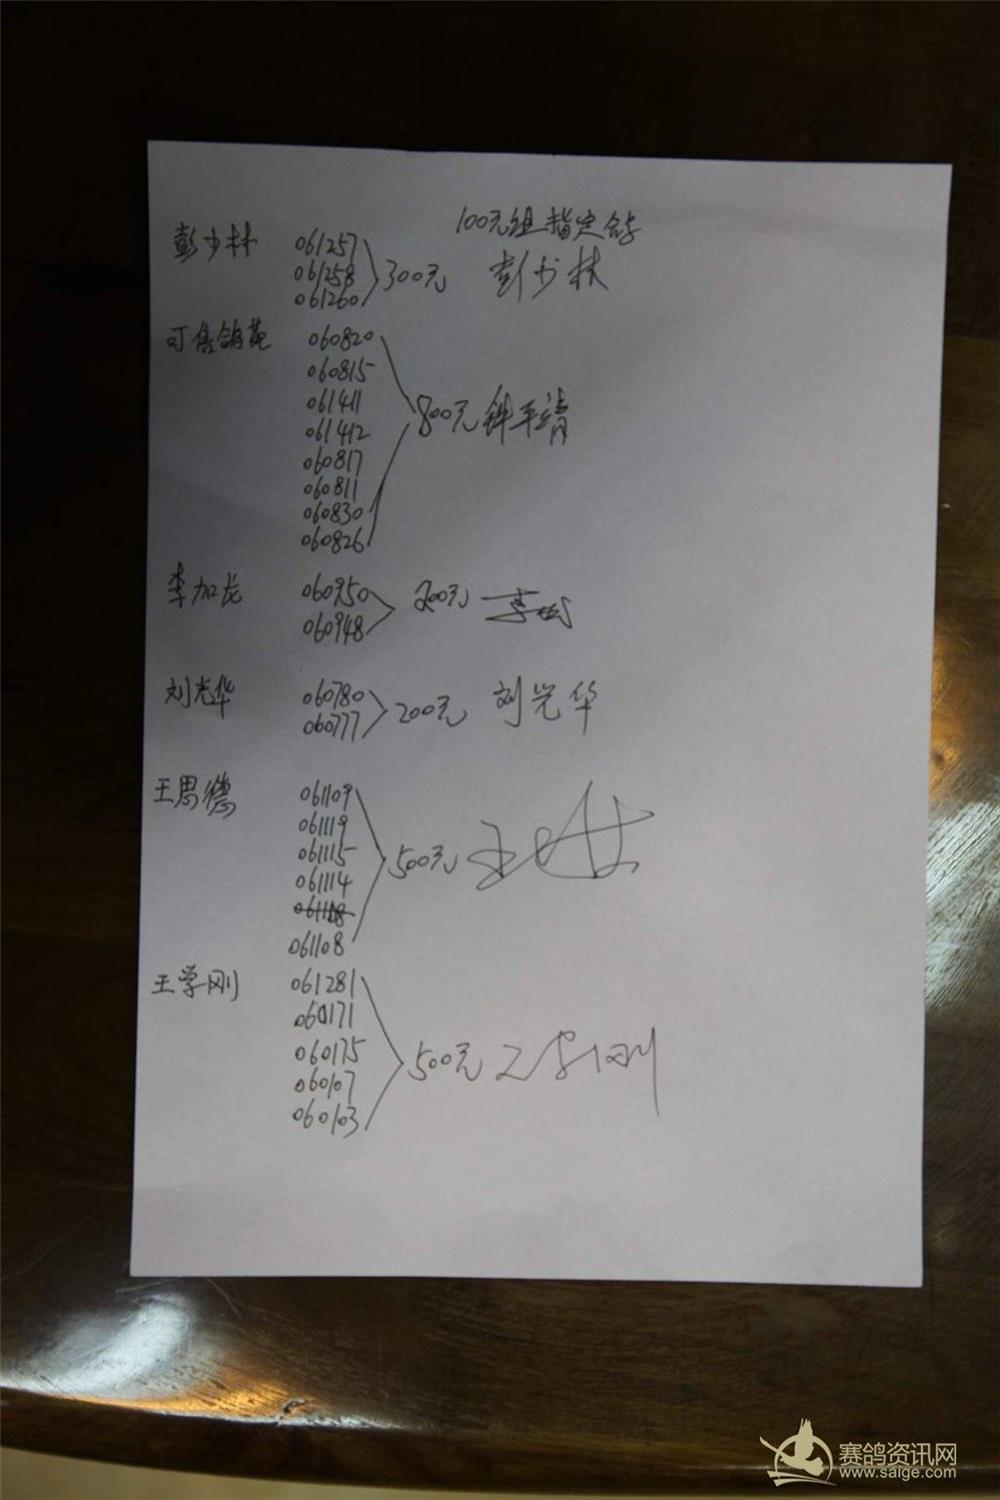 100元组指定鸽
彭少林 061257 300元 彭少林
061258
061260
可售鸽苑 060820 800元
060815
061411
061412
060817
060811
060830
060826
李加长 060950 200元
060948
刘光华 060780 200元 刘光华
060777
王思德 061109 500元
061119
061115
061114
061108
王学刚 061281 500元 王学刚
060171
060175
060107
060103
赛鸽资讯网
www.saige.com